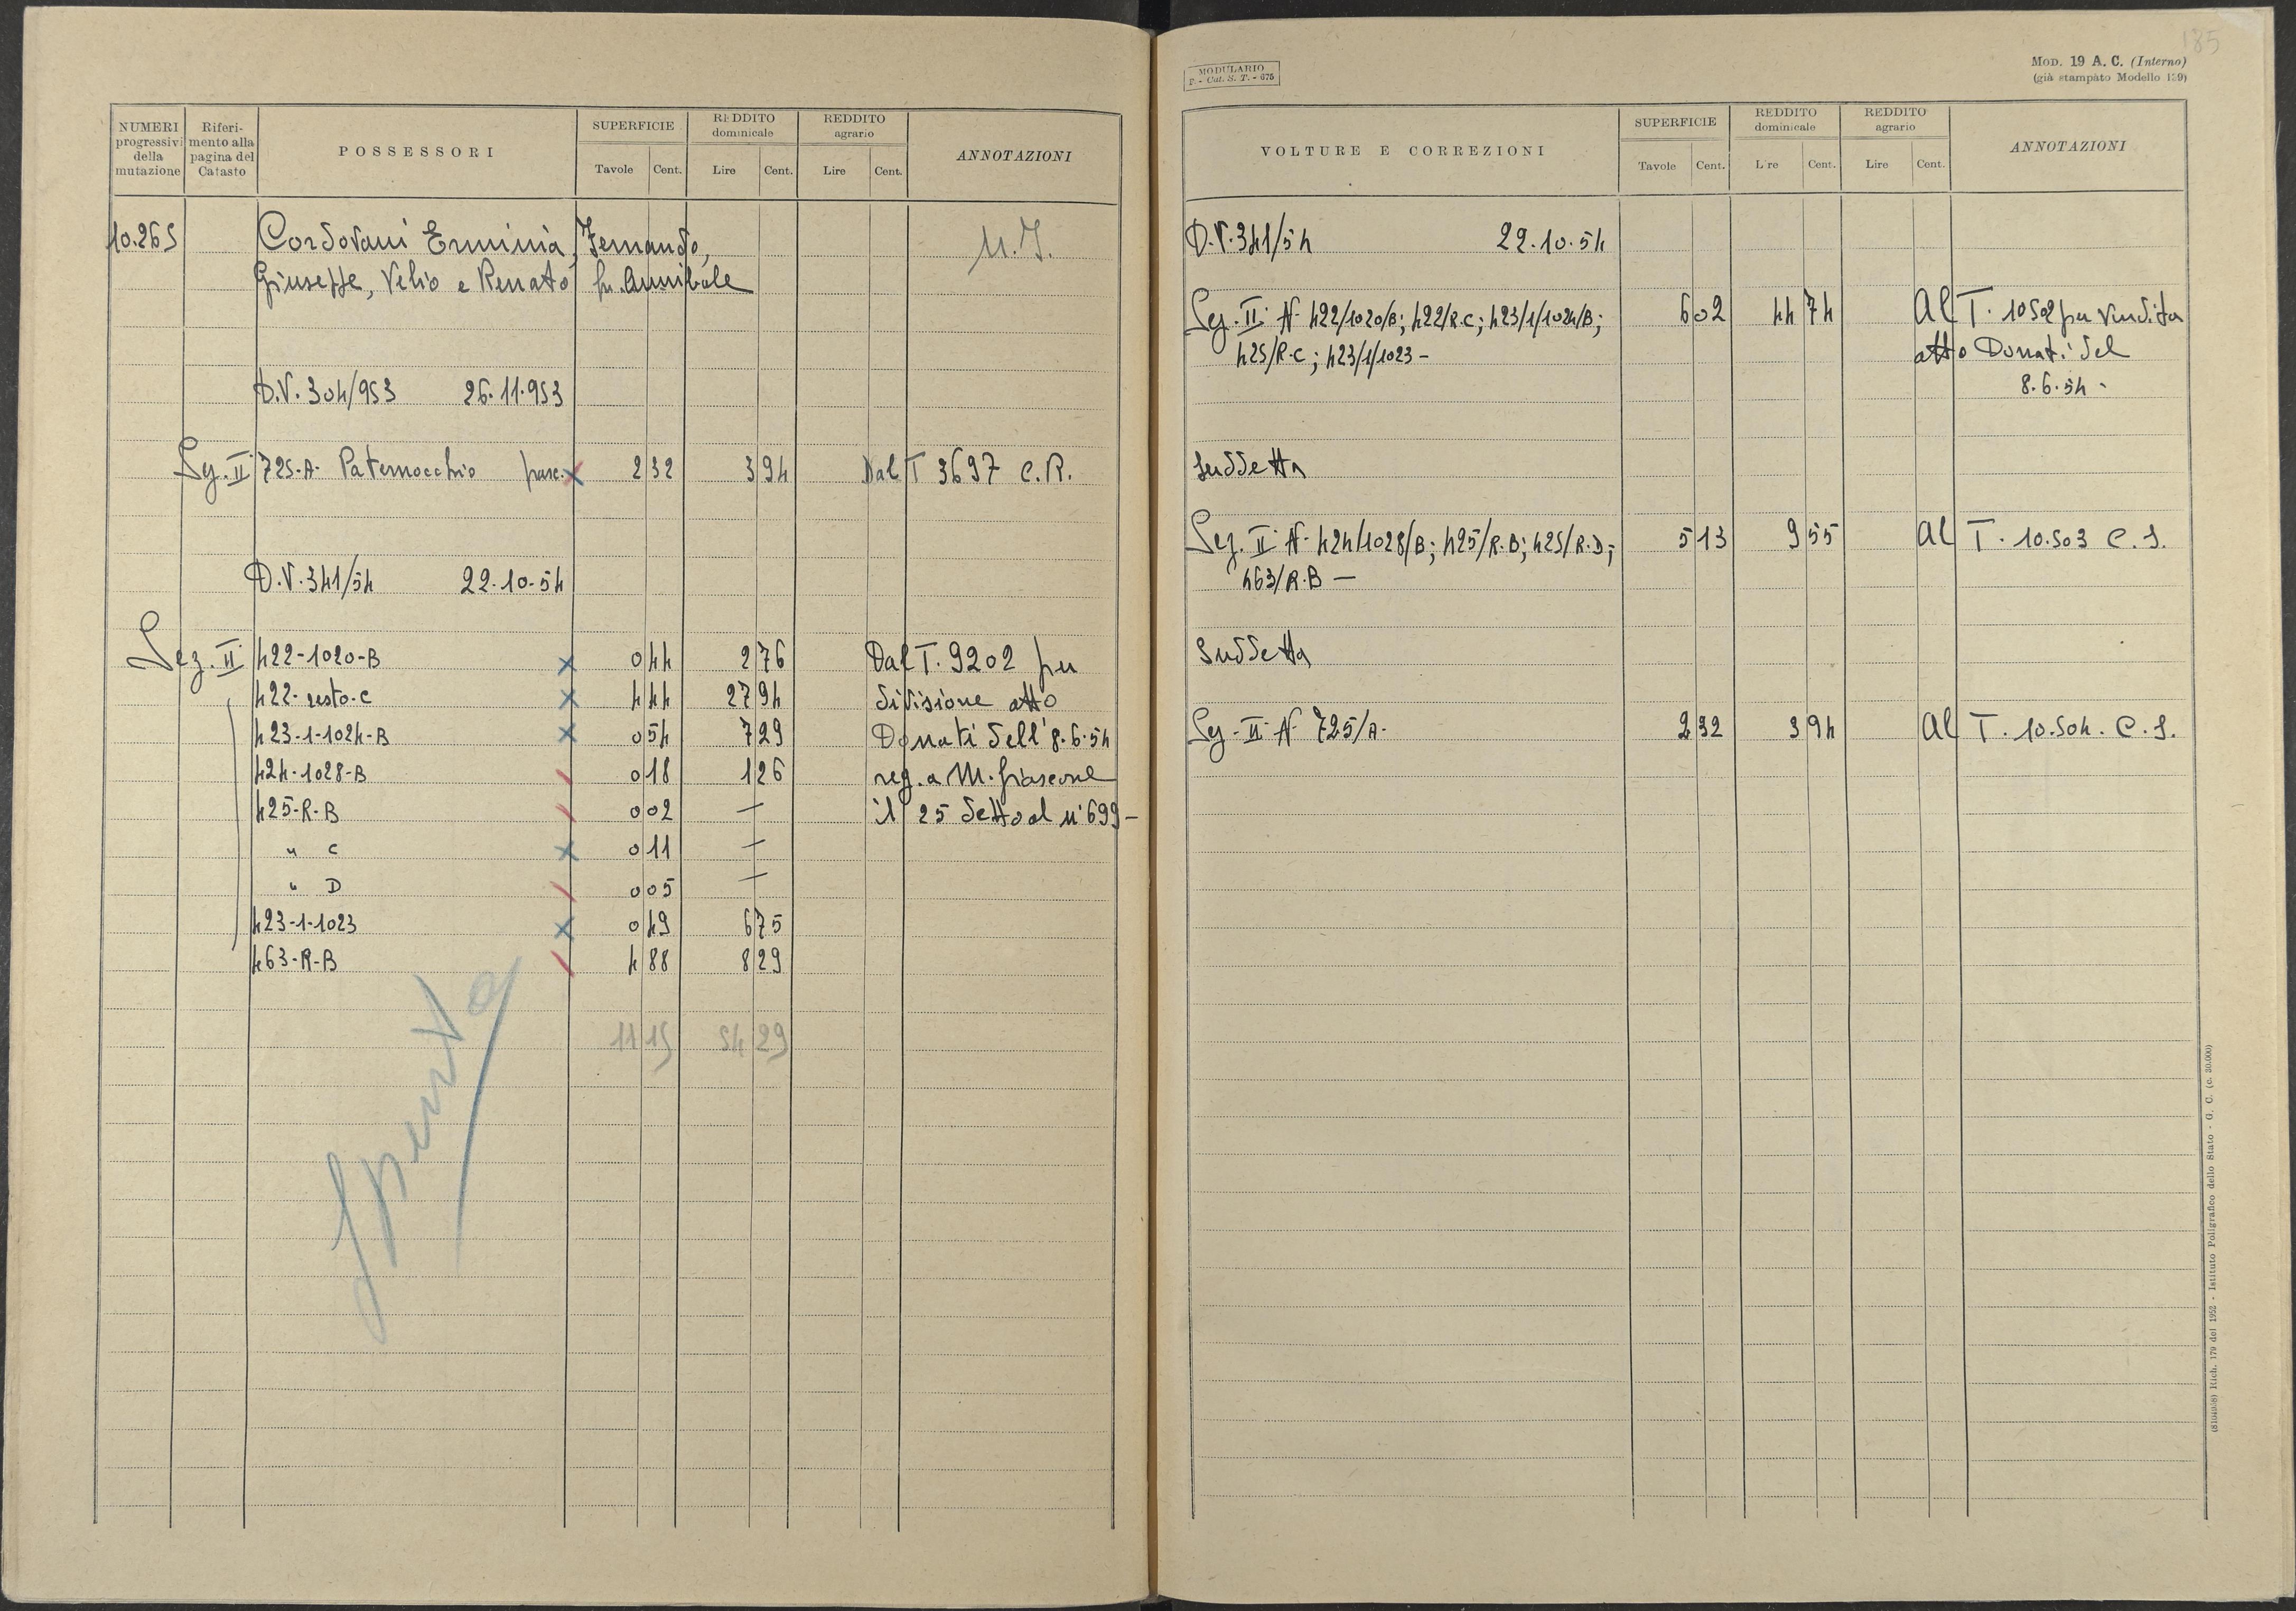 NUMERI progressivi della mutazione
Riferimento alla pagina del Catasto
POSSESSORI
SUPERFICIE
Tavole Cent.
REDDITO dominicale
Lire Cent.
REDDITO agrario
Lire Cent.
ANNOTAZIONI
10.265 Cordovani Erminia, Fernando,
Giuseppe, Velio e Renato fu Annibale
D.V. 304/953 26.11.953
Sez. II 725-A- Paternocchio pasc. 2 32 3 94 Dal T 3697 C.R.
D.V. 341/54 22-10-54
Sez. II 422-1020-B 0 44 2 76 Dal T. 9202 per
422-resto-C 4 44 27 94 divisione atto
423-1-1024-B 0 54 7 29 Donati dell'8.6.54
424-1028-B 0 18 1 26 reg. a M.fiascone
425-R-B 0 02 — il 25 detto al n° 699-
" C 0 11 —
" D 0 05 —
423-1-1023 0 49 6 75
463-R-B 4 88 8 29
11 15 54 29
Spenta
185
MODULARIO
F. - Cat. S. T. - 675
MOD. 19 A. C. (Interno)
(già stampato Modello 139)
VOLTURE E CORREZIONI
SUPERFICIE
Tavole Cent.
REDDITO dominicale
Lire Cent.
REDDITO agrario
Lire Cent.
ANNOTAZIONI
D.V. 341/54 22.10.54
Sez. II N- 422/1020/B; 422/R.C; 423/1/1024/B; 6 02 44 74 Al T. 10502 per vendita
425/R-C; 423/1/1023- atto Donati del
8.6.54-
Suddetta
Sez. II N- 424/1028/B; 425/R.B; 425/R.D; 5 13 9 55 Al T. 10.503 C.S.
463/R.B —
Suddetta
Sez. II N 725/A- 2 32 3 94 Al T. 10.504. C.S.
Rich. 179 del 1952 - Istituto Poligrafico dello Stato - G. C. (c. 30.000)